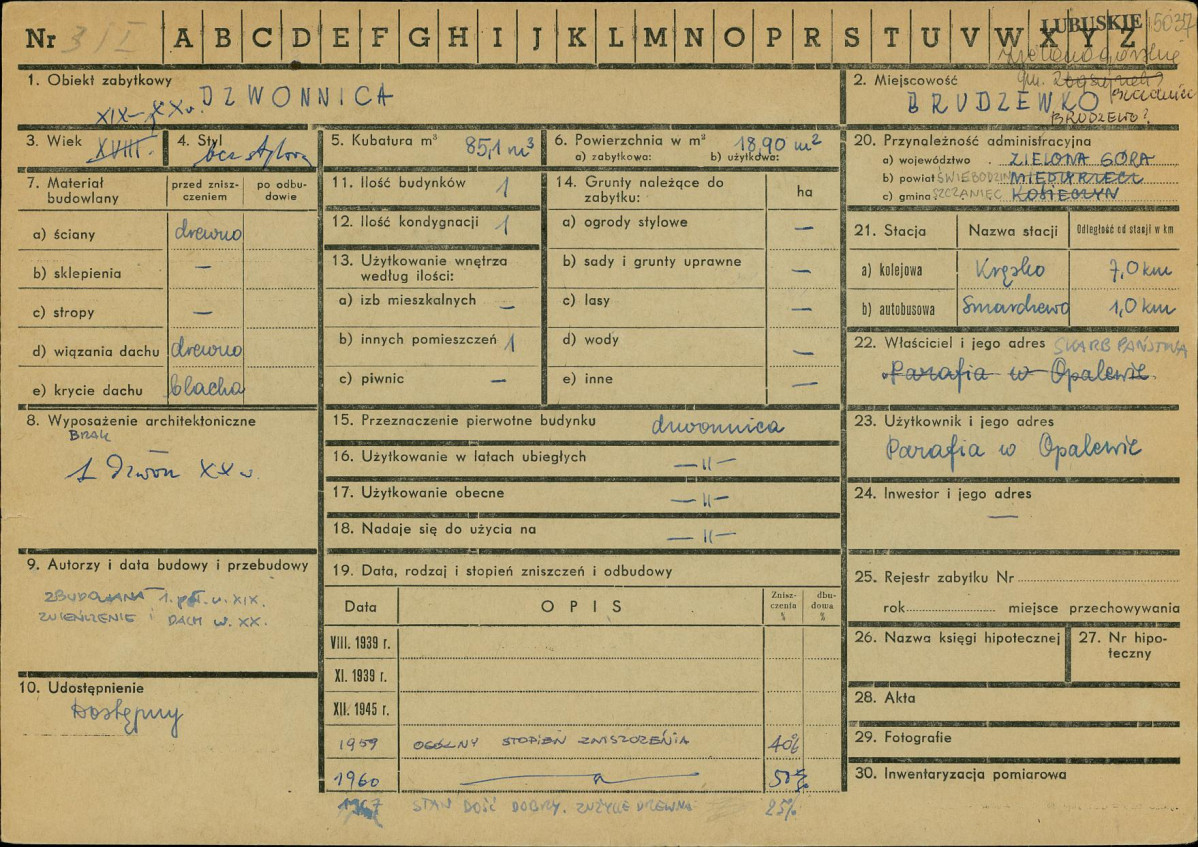 Nr 3/I A B C D E F G H I J K L M N O P R S T U V W X Y Z LUBUSKIE
1. Obiekt zabytkowy DZWONNICA
2. Miejscowość gm.
BRUDZEWKO
BRUDZEWO?
XIX-XX w.
3. Wiek XVIII.
4. Styl bez stylowy
5. Kubatura m³ 85,1 m³
6. Powierzchnia w m² 18,90 m²
a) zabytkowa: b) użytkowa:
7. Materiał budowlany
przed zniszczeniem
po odbudowie
a) ściany drewno
b) sklepienia —
c) stropy —
d) wiązania dachu drewno
e) krycie dachu blacha
8. Wyposażenie architektoniczne
BRAK
1 dzwon XX w
9. Autorzy i data budowy i przebudowy
ZBUDOWANA 1. poł. w. XIX.
ZWIEŃCZENIE i DACH w. XX.
10. Udostępnienie
Dostępny
11. Ilość budynków 1
12. Ilość kondygnacji 1
13. Użytkowanie wnętrza
według ilości:
a) izb mieszkalnych —
b) innych pomieszczeń 1
c) piwnic —
14. Grunty należące do
zabytku: ha
a) ogrody stylowe —
b) sady i grunty uprawne —
c) lasy —
d) wody —
e) inne —
15. Przeznaczenie pierwotne budynku dzwonnica
16. Użytkowanie w latach ubiegłych —॥—
17. Użytkowanie obecne —॥—
18. Nadaje się do użycia na —॥—
19. Data, rodzaj i stopień zniszczeń i odbudowy
Data OPIS Zniszczenia % dbudowa %
VIII. 1939 r.
XI. 1939 r.
XII. 1945 r.
1959 OGÓLNY STOPIEŃ ZNISZCZENIA 40%
1960 50%
1967 STAN DOŚĆ DOBRY. ZUŻYCIE DREWNA 25%
20. Przynależność administracyjna
a) województwo . ZIELONA GÓRA
b) powiat ŚWIEBODZIN MIĘDZYRZECZ
c) gmina SZCZANIEC KOSIECZYN
21. Stacja Nazwa stacji Odległość od stacji w km
a) kolejowa Kręsko 7,0 km
b) autobusowa Smardzewo 1,0 km
22. Właściciel i jego adres SKARB PAŃSTWA
Parafia w Opalewie.
23. Użytkownik i jego adres
Parafia w Opalewie
24. Inwestor i jego adres
—
25. Rejestr zabytku Nr
rok miejsce przechowywania
26. Nazwa księgi hipotecznej
27. Nr hipoteczny
28. Akta
29. Fotografie
30. Inwentaryzacja pomiarowa